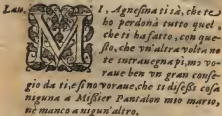 Lau. MI, Agnesina ti sà, che te
ho perdonà tutto quel
che ti ha fatto, con que-
sto, che vn'altra volta no
te intrauegna pi, mo vo-
raue ben vn gran conse-
gio da ti, e si no voraue, che ti disessi cosa
niguna a Missier Pantalon mio mario,
ne manco a nigun'altro.